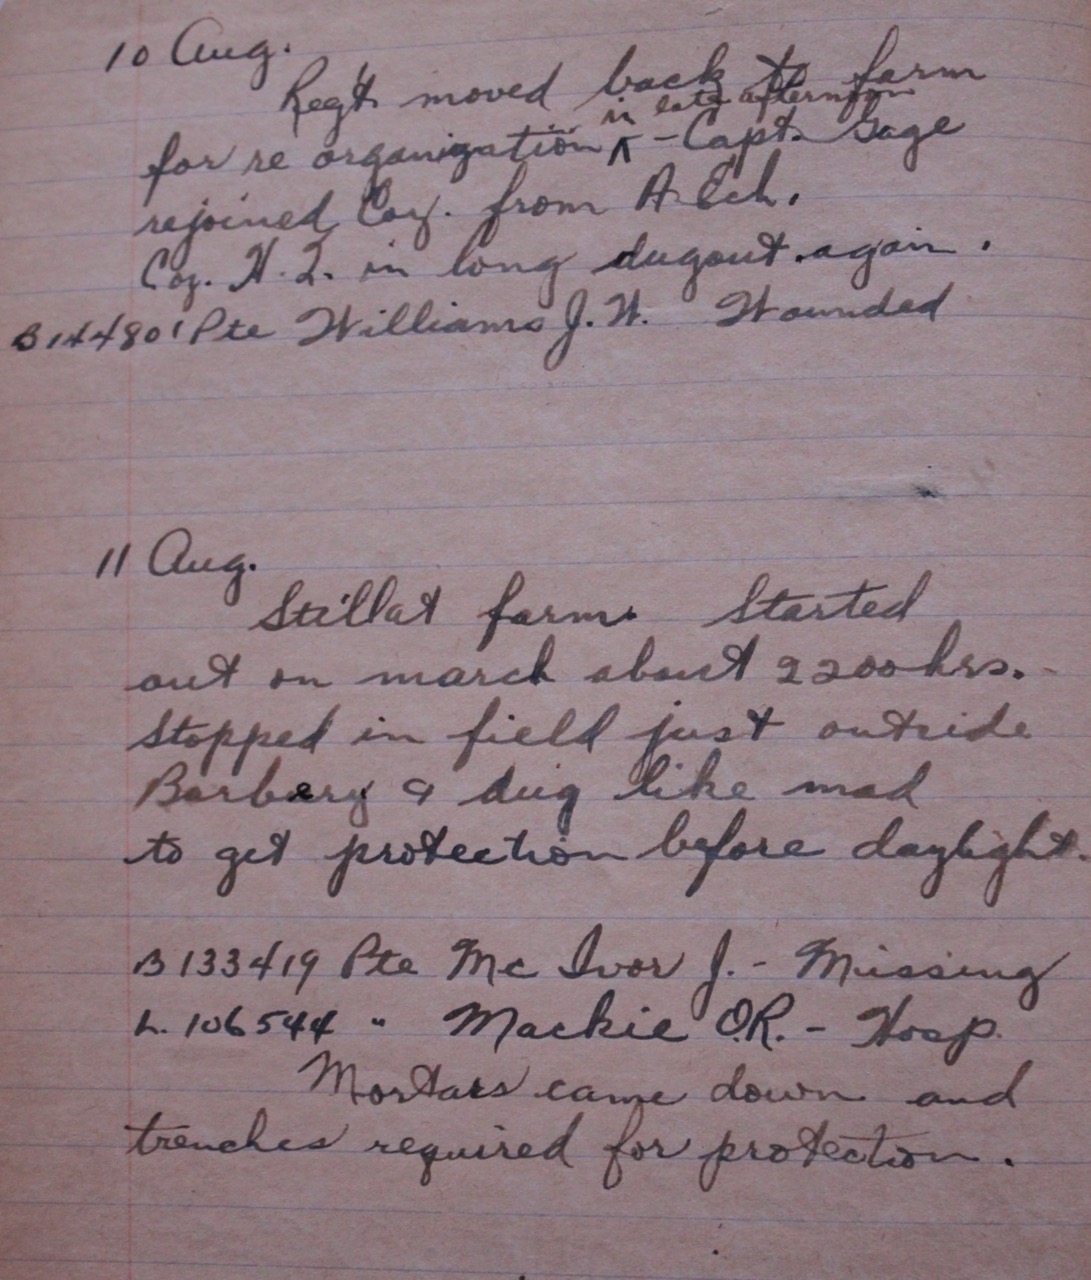 10 Aug.
Reg't moved back to farm
in late afternoon
for re organization ^ - Capt. Gage
rejoined Coy. from A Ech.
Coy. H.Q. in long dugout again.
B144801 Pte Williams J.W. Wounded
11 Aug.
Still at farm. Started
out on march about 2200 hrs.
Stopped in field just outside
Barbery & dug like mad
to get protection before daylight.
B133419 Pte Mc Ivor J. - Missing
L. 106544 " Mackie O.R. - Hosp.
Mortars came down and
trenches required for protection.